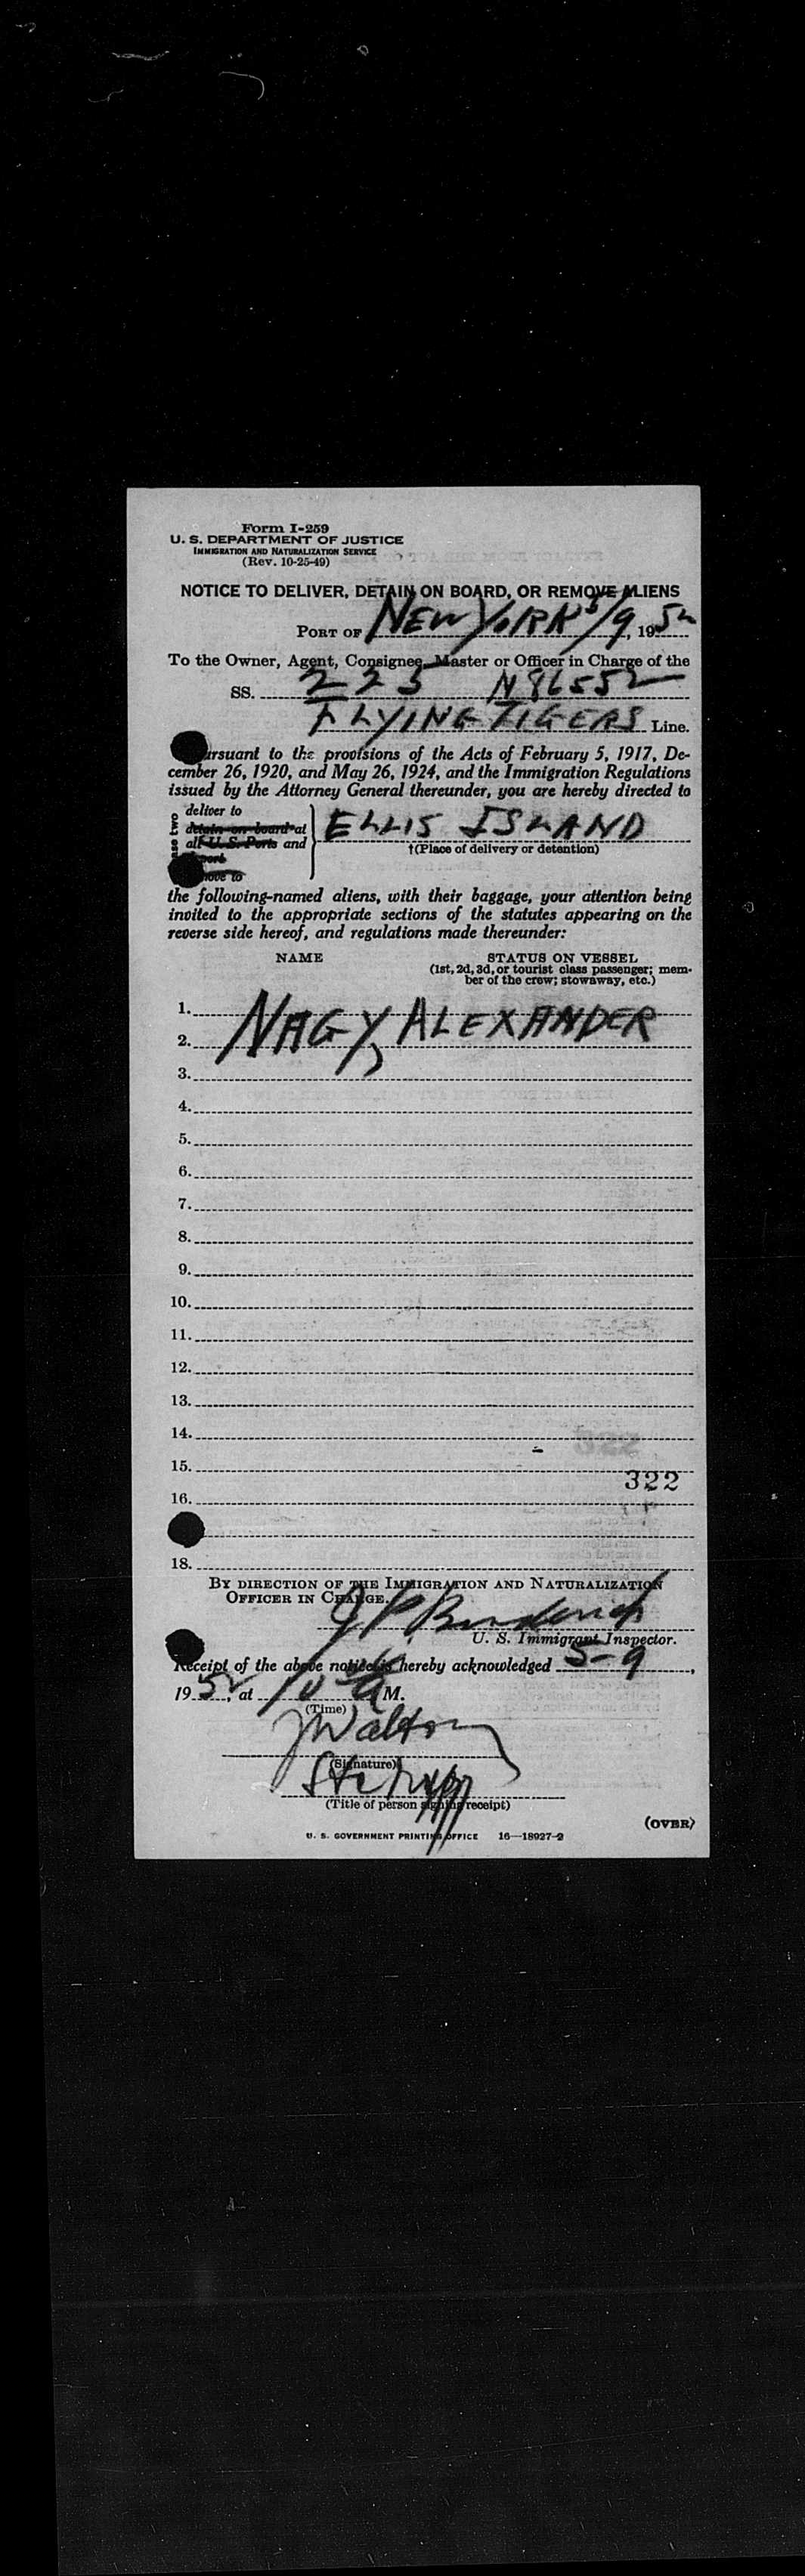 Form I-259
U. S. DEPARTMENT OF JUSTICE
IMMIGRATION AND NATURALIZATION SERVICE
(Rev. 10-25-49)
NOTICE TO DELIVER, DETAIN ON BOARD, OR REMOVE ALIENS
PORT OF NEW YORK 5/9, 1952
To the Owner, Agent, Consignee, Master or Officer in Charge of the
SS. 225 N86552
FLYING TIGERS Line.
ursuant to the provisions of the Acts of February 5, 1917, De-
cember 26, 1920, and May 26, 1924, and the Immigration Regulations
issued by the Attorney General thereunder, you are hereby directed to
deliver to
detain on board at
all U. S. Ports and
ELLIS ISLAND
†(Place of delivery or detention)
the following-named aliens, with their baggage, your attention being
invited to the appropriate sections of the statutes appearing on the
reverse side hereof, and regulations made thereunder:
NAME STATUS ON VESSEL
(1st, 2d, 3d, or tourist class passenger; mem-
ber of the crew; stowaway, etc.)
1.
2. NAGY, ALEXANDER
3.
4.
5.
6.
7.
8.
9.
10.
11.
12.
13.
14.
15.
322
16.
18.
BY DIRECTION OF THE IMMIGRATION AND NATURALIZATION
OFFICER IN CHARGE.
U. S. Immigrant Inspector.
Receipt of the above notice is hereby acknowledged 5-9,
1952, at 10 A M.
(Time)
J Walton
(Signature)
(Title of person signing receipt)
(OVER)
U. S. GOVERNMENT PRINTING OFFICE 16—18927-2